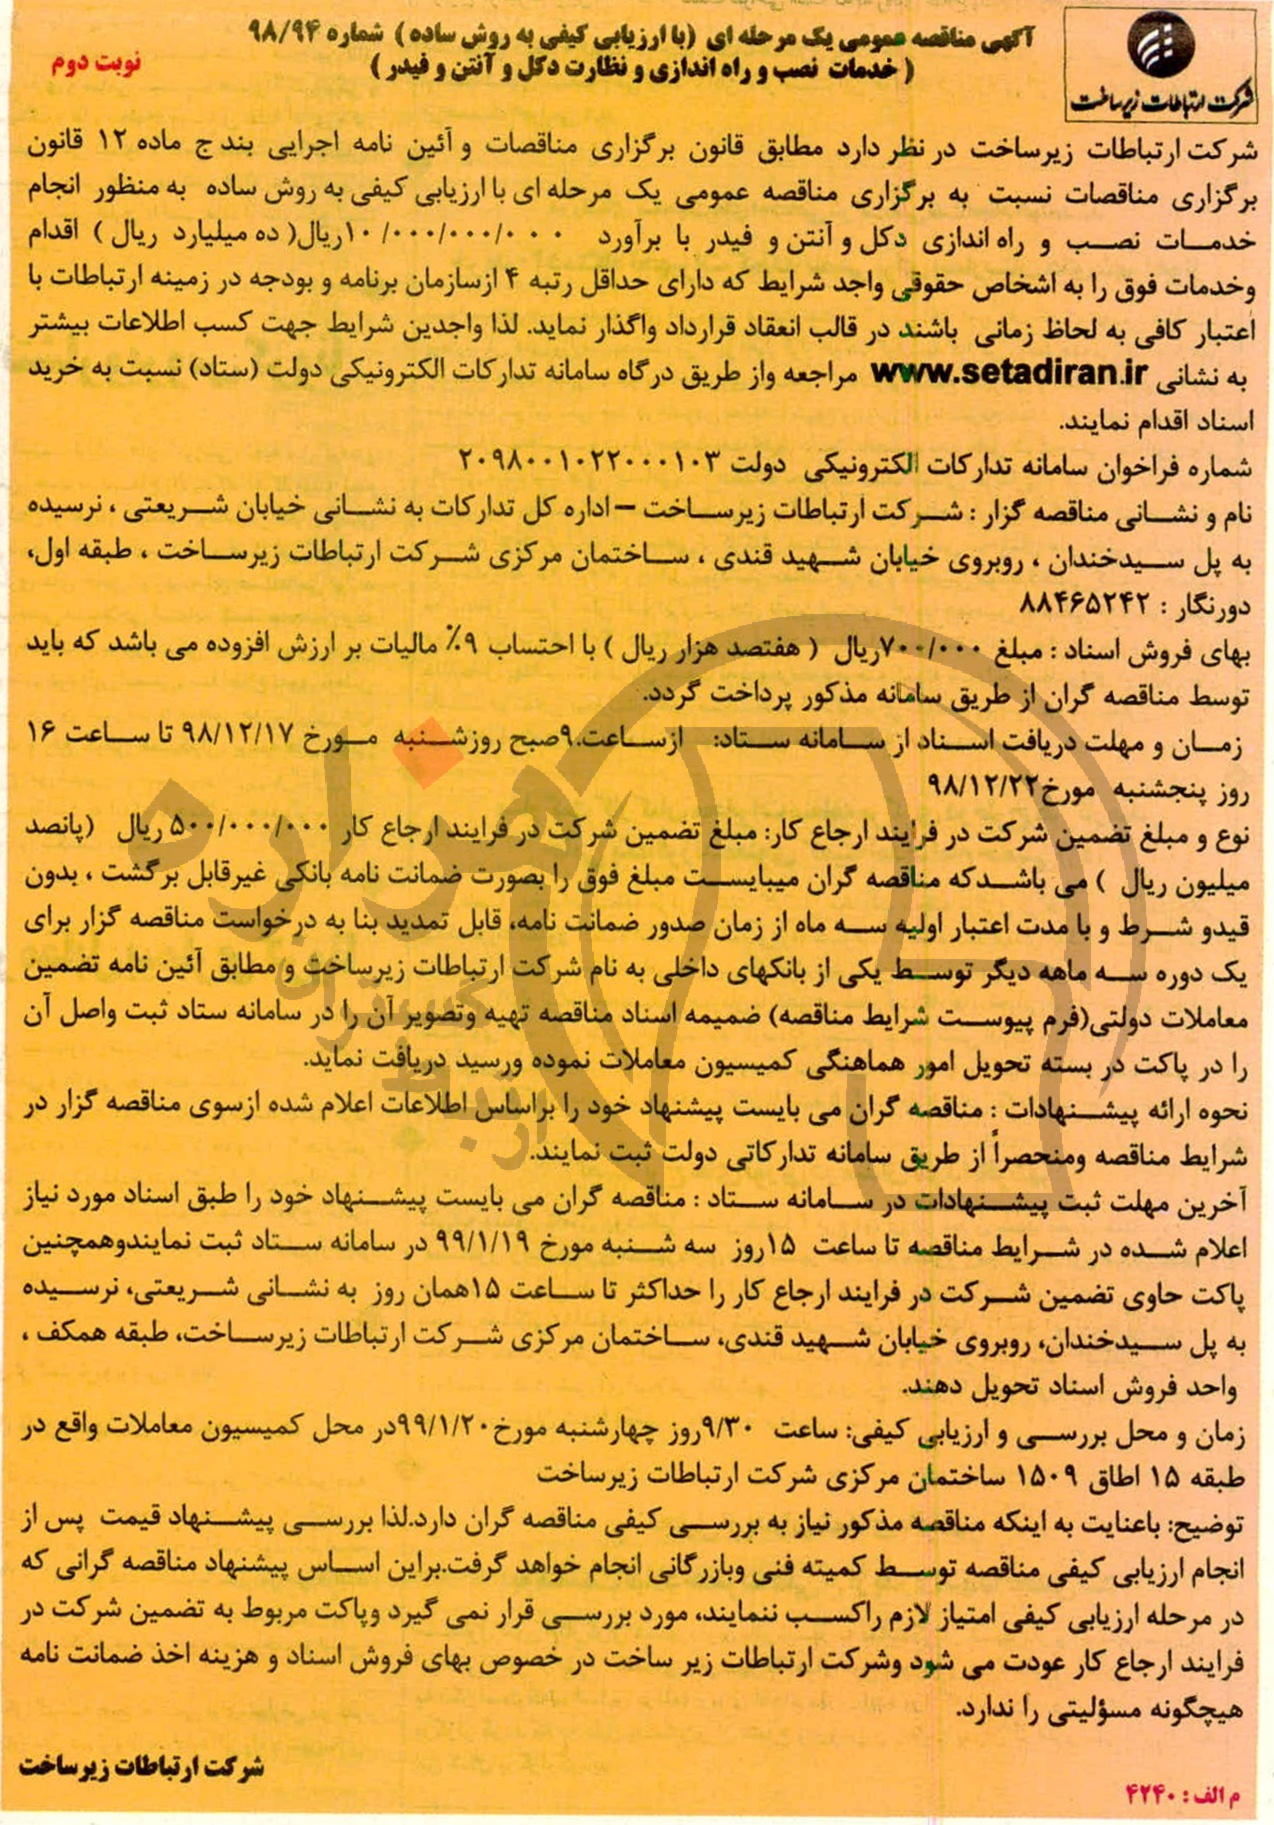 شرکت ارتباطات زیرساخت
آگهی مناقصه عمومی یک مرحله ای (با ارزیابی کیفی به روش ساده) شماره ۹۸/۹۴
(خدمات نصب و راه اندازی و نظارت دکل و آنتن و فیدر)
نوبت دوم
شرکت ارتباطات زیرساخت در نظر دارد مطابق قانون برگزاری مناقصات و آئین نامه اجرایی بند ج ماده ۱۲ قانون
برگزاری مناقصات نسبت به برگزاری مناقصه عمومی یک مرحله ای با ارزیابی کیفی به روش ساده به منظور انجام
خدمات نصب و راه اندازی دکل و آنتن و فیدر با برآورد ۱۰/۰۰۰/۰۰۰/۰۰۰ریال( ده میلیارد ریال ) اقدام
وخدمات فوق را به اشخاص حقوقی واجد شرایط که دارای حداقل رتبه ۴ ازسازمان برنامه و بودجه در زمینه ارتباطات با
اعتبار کافی به لحاظ زمانی باشند در قالب انعقاد قرارداد واگذار نماید. لذا واجدین شرایط جهت کسب اطلاعات بیشتر
به نشانی www.setadiran.ir مراجعه واز طریق درگاه سامانه تدارکات الکترونیکی دولت (ستاد) نسبت به خرید
اسناد اقدام نمایند.
شماره فراخوان سامانه تدارکات الکترونیکی دولت ۲۰۹۸۰۰۱۰۲۲۰۰۰۱۰۳
نام و نشانی مناقصه گزار : شرکت ارتباطات زیرساخت –اداره کل تدارکات به نشانی خیابان شریعتی ، نرسیده
به پل سیدخندان ، روبروی خیابان شهید قندی ، ساختمان مرکزی شرکت ارتباطات زیرساخت ، طبقه اول،
دورنگار : ۸۸۴۶۵۲۴۲
بهای فروش اسناد : مبلغ ۷۰۰/۰۰۰ریال ( هفتصد هزار ریال ) با احتساب ۹٪ مالیات بر ارزش افزوده می باشد که باید
توسط مناقصه گران از طریق سامانه مذکور پرداخت گردد.
زمان و مهلت دریافت اسناد از سامانه ستاد: ازساعت.۹صبح روزشنبه مورخ ۹۸/۱۲/۱۷ تا ساعت ۱۶
روز پنجشنبه مورخ۹۸/۱۲/۲۲
نوع و مبلغ تضمین شرکت در فرایند ارجاع کار: مبلغ تضمین شرکت در فرایند ارجاع کار ۵۰۰/۰۰۰/۰۰۰ ریال (پانصد
میلیون ریال ) می باشدکه مناقصه گران میبایست مبلغ فوق را بصورت ضمانت نامه بانکی غیرقابل برگشت ، بدون
قیدو شرط و با مدت اعتبار اولیه سه ماه از زمان صدور ضمانت نامه، قابل تمدید بنا به درخواست مناقصه گزار برای
یک دوره سه ماهه دیگر توسط یکی از بانکهای داخلی به نام شرکت ارتباطات زیرساخت و مطابق آئین نامه تضمین
معاملات دولتی(فرم پیوست شرایط مناقصه) ضمیمه اسناد مناقصه تهیه وتصویر آن را در سامانه ستاد ثبت واصل آن
را در پاکت در بسته تحویل امور هماهنگی کمیسیون معاملات نموده ورسید دریافت نماید.
نحوه ارائه پیشنهادات : مناقصه گران می بایست پیشنهاد خود را براساس اطلاعات اعلام شده ازسوی مناقصه گزار در
شرایط مناقصه ومنحصراً از طریق سامانه تدارکاتی دولت ثبت نمایند.
آخرین مهلت ثبت پیشنهادات در سامانه ستاد : مناقصه گران می بایست پیشنهاد خود را طبق اسناد مورد نیاز
اعلام شده در شرایط مناقصه تا ساعت ۱۵روز سه شنبه مورخ ۹۹/۱/۱۹ در سامانه ستاد ثبت نمایندوهمچنین
پاکت حاوی تضمین شرکت در فرایند ارجاع کار را حداکثر تا ساعت ۱۵همان روز به نشانی شریعتی، نرسیده
به پل سیدخندان، روبروی خیابان شهید قندی، ساختمان مرکزی شرکت ارتباطات زیرساخت، طبقه همکف ،
واحد فروش اسناد تحویل دهند.
زمان و محل بررسی و ارزیابی کیفی: ساعت ۹/۳۰روز چهارشنبه مورخ۹۹/۱/۲۰در محل کمیسیون معاملات واقع در
طبقه ۱۵ اطاق ۱۵۰۹ ساختمان مرکزی شرکت ارتباطات زیرساخت
توضیح: باعنایت به اینکه مناقصه مذکور نیاز به بررسی کیفی مناقصه گران دارد.لذا بررسی پیشنهاد قیمت پس از
انجام ارزیابی کیفی مناقصه توسط کمیته فنی وبازرگانی انجام خواهد گرفت.براین اساس پیشنهاد مناقصه گرانی که
در مرحله ارزیابی کیفی امتیاز لازم راکسب ننمایند، مورد بررسی قرار نمی گیرد وپاکت مربوط به تضمین شرکت در
فرایند ارجاع کار عودت می شود وشرکت ارتباطات زیر ساخت در خصوص بهای فروش اسناد و هزینه اخذ ضمانت نامه
هیچگونه مسؤلیتی را ندارد.
شرکت ارتباطات زیرساخت
م الف : ۴۲۴۰